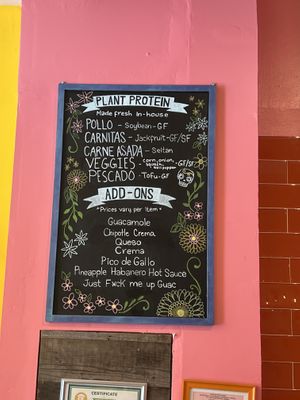 PLANT PROTEIN
Made fresh in-house
POLLO - Soybean-GF
CARNITAS - Jackfruit-GF/SF
CARNE ASADA - Seitan
VEGGIES - corn, onion, GF/SF
PESCADO - Tofu-GF
ADD-ONS
*Prices vary per item*
Guacamole
Chipotle Crema
Queso
Crema
Pico de Gallo
Pineapple Habanero Hot Sauce
Just F*CK me up Guac
CERTIFICATE